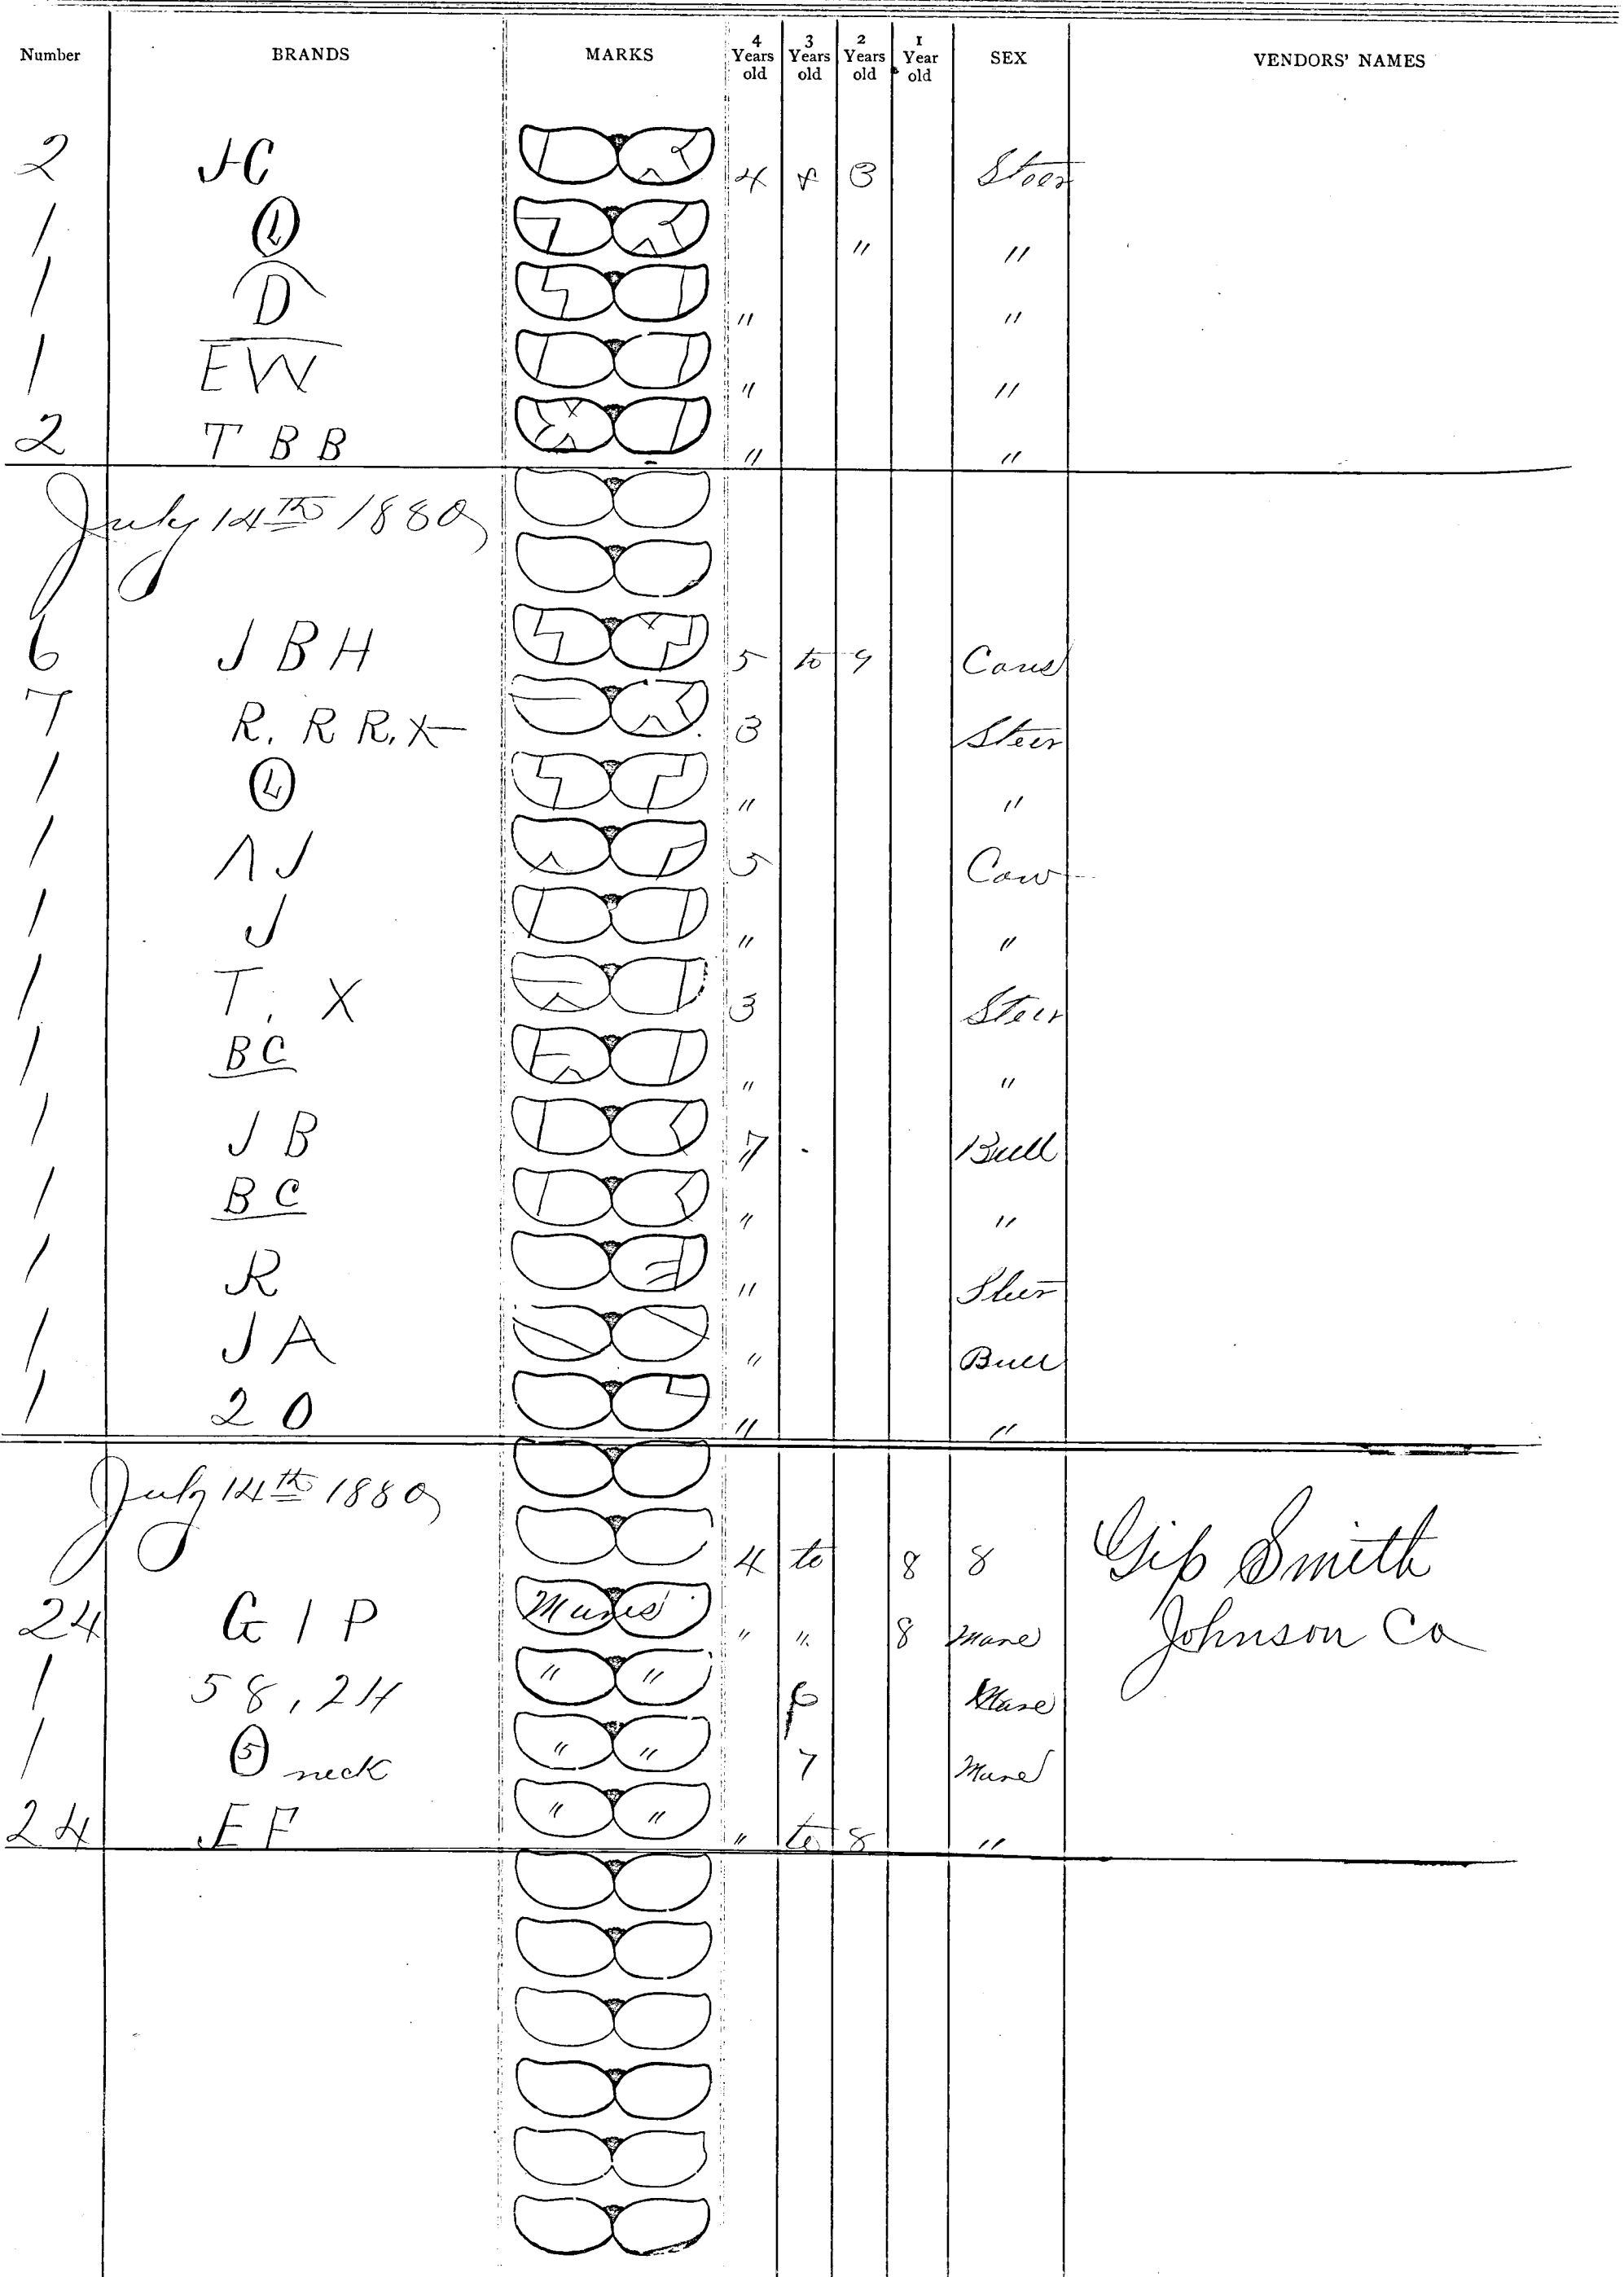 Number BRANDS MARKS 4 Years old 3 Years old 2 Years old 1 Year old SEX VENDORS' NAMES
2 JC 4 & 3 Steer
1 L " "
1 D " "
1 EW " "
2 T B B " "
July 14th 1880
6 J B H 5 to 9 Cows
7 R. R R. X 3 Steer
1 L " "
1 Λ J 5 Cow
1 J " "
1 T. X 3 Steer
1 BC " "
1 J B 7 Bull
1 BC " "
1 R " Steer
1 J A " Bull
1 2 0 " "
July 14th 1880
4 to 8 8 Gip Smith
24 G I P Mares " " 8 Mare Johnson Co
1 58, 24 " " Mare
1 5 neck " " 7 Mare
24 " " " to 8 "